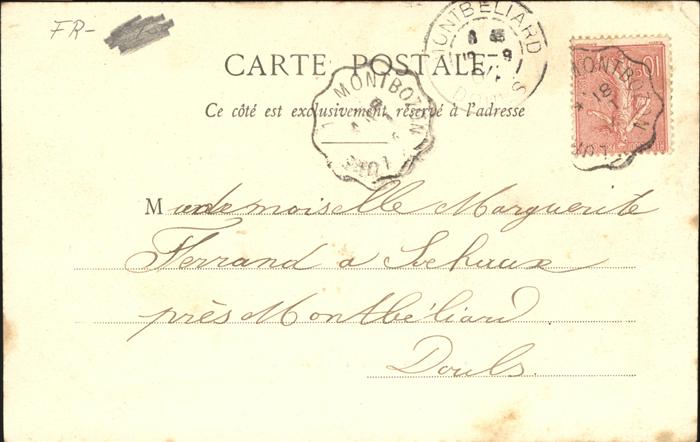 FR-
CARTE POSTALE
Ce côté est exclusivement réservé à l'adresse
MONTBÉLIARD
DOUBS
MONTBOZON
LURE
MONTBOZON
LURE
10
Mademoiselle Marguerite
Ferrand a Sochaux
près Montbéliard
Doubs.